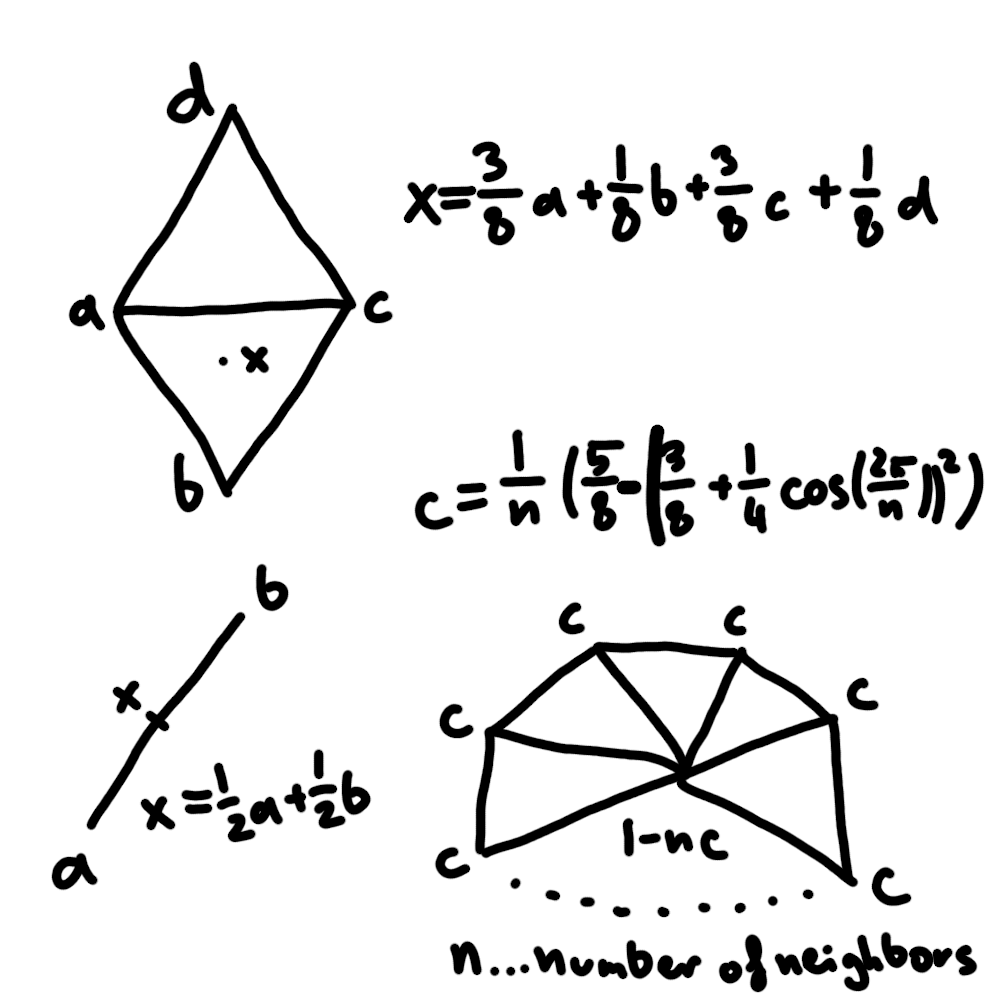 d
x=3/8 a+1/8 b+3/8 c+1/8 d
a
c
x
b
c=1/n (5/8-(3/8+1/4 cos(25/n))²)
b
x
x=1/2 a+1/2 b
a
c
c
c
c
1-nc
c
c
n...number of neighbors